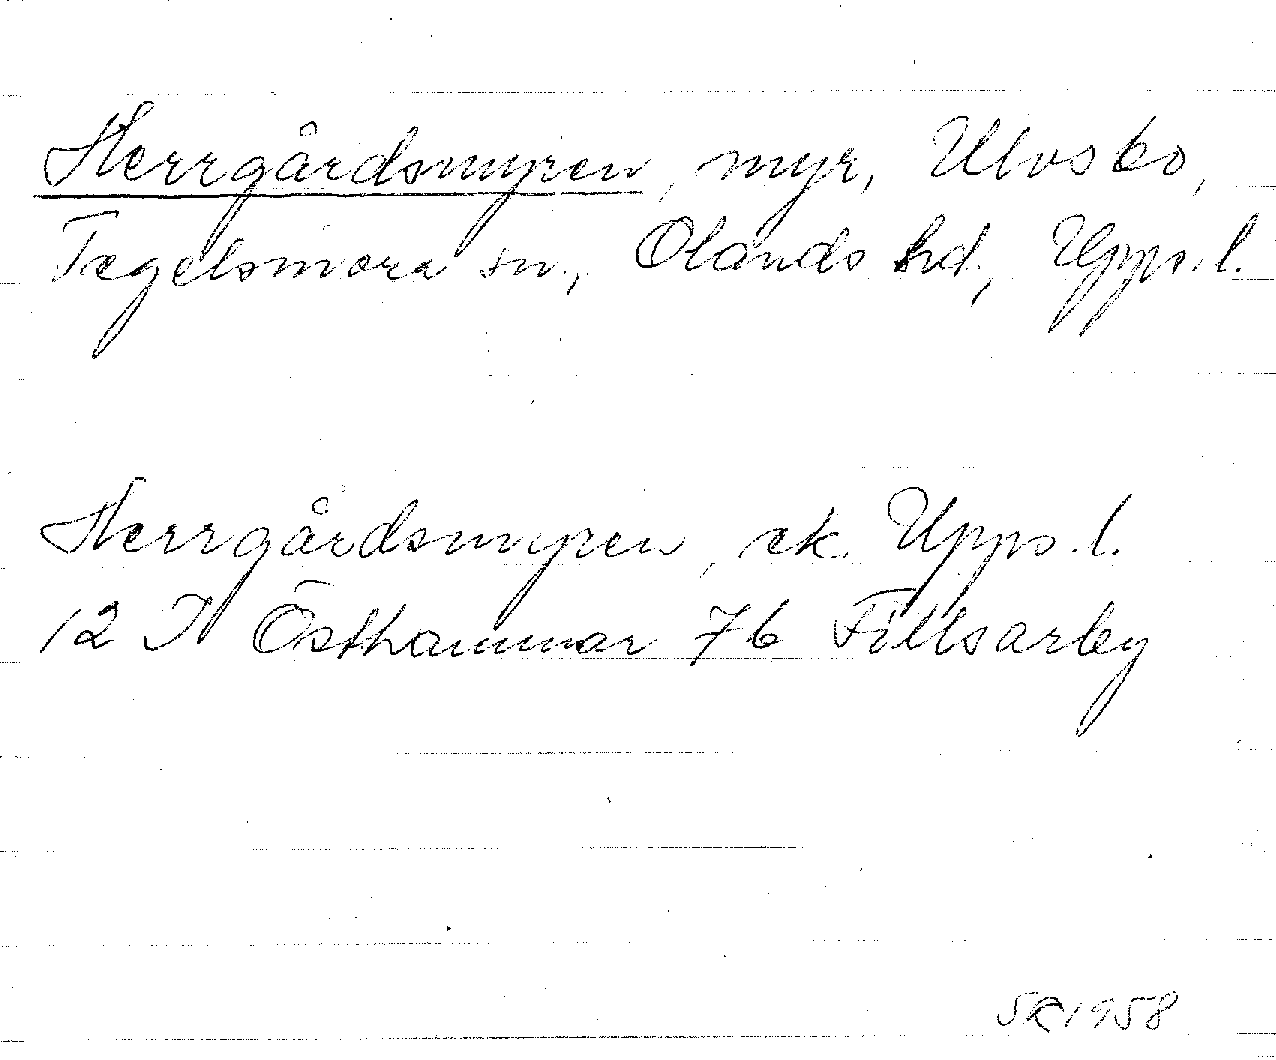 Herrgårdsmyren, myr, Ulvsbo,
Tegelsmora sn., Olands hd, Upps.l.
Herrgårdsmyren, ek. Upps.l.
12 I Östhammar 7b Fillsarby
SR 1958